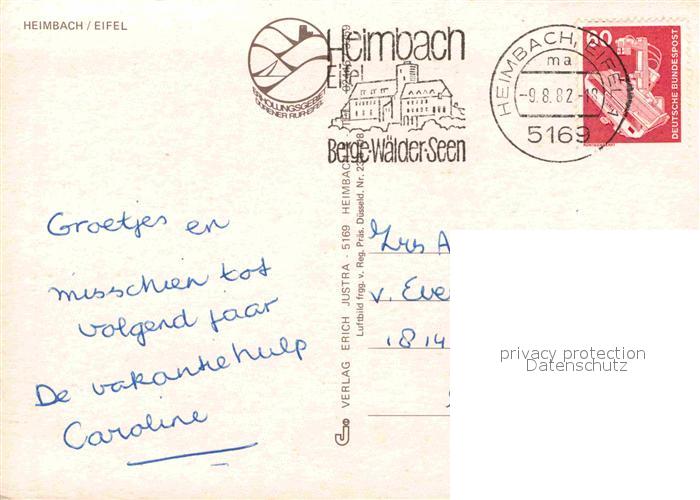 HEIMBACH / EIFEL
ERHOLUNGSGEBIET
DÜRENER RUR-EIFEL
Heimbach
Eifel
Berge-Wälder-Seen
HEIMBACH, EIFEL 1
ma
-9.8.82-18
5169
60
DEUTSCHE BUNDESPOST
Groetjes en
misschien tot
volgend jaar
De vakantiehulp
Caroline
VERLAG ERICH JUSTRA - 5169 HEIMBACH
Luftbild frgg. v. Reg. Präs. Düsseld. Nr.
Zrs A
v. Eve
1814
privacy protection
Datenschutz